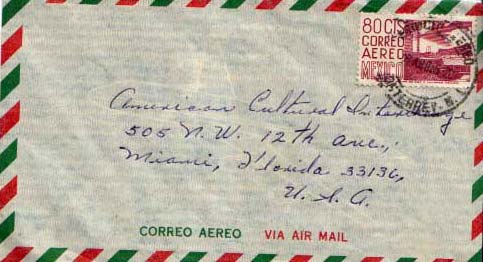 80 CTS
CORREO
AEREO
MEXICO
MONTERREY, N.
American Cultural Interchange
505 N.W. 12th Ave.,
Miami, Florida 33136,
U.S.A.
CORREO AEREO VIA AIR MAIL